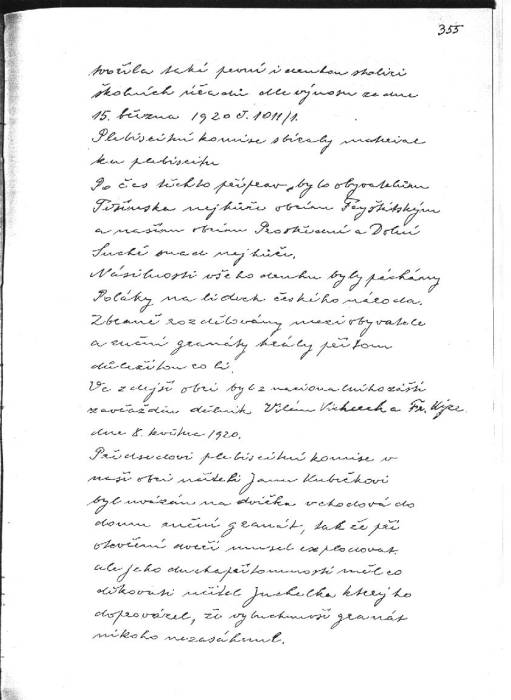 355
tvořila také první i druhou stolici
školních úřadů dle výnosu ze dne
15. března 1920 č. 1011/1.
Plebiscitní komise sbíraly materiál
ku plebiscitu
Po čas těchto příprav, bylo obyvatelům
Těšínska nejhůře obcím Fryštátským
a našim obcím Prostřední a Dolní
Suché snad nejhůře.
Násilnosti všeho druhu byly páchány
Poláky na lidech českého národa.
Zbraně rozdělovány mezi obyvatele
a ruční granáty hrály přitom
důležitou roli.
Ve zdejší obci byl z nacionalního záští
zavražděn dělník Vilém a Fr.
dne 8. května 1920.
Předsedovi plebiscitní komise v
naší obci učiteli Janu Kubičkovi
byl uvázán na dvířka vchodová do
domu ruční granát, tak že při
otevření dveří musel explodovat.
ale jeho duchapřítomnosti měl co
děkovati učitel Juchelka který ho
doprovázel, že vybuchnuvší granát
nikoho nezasáhnul.